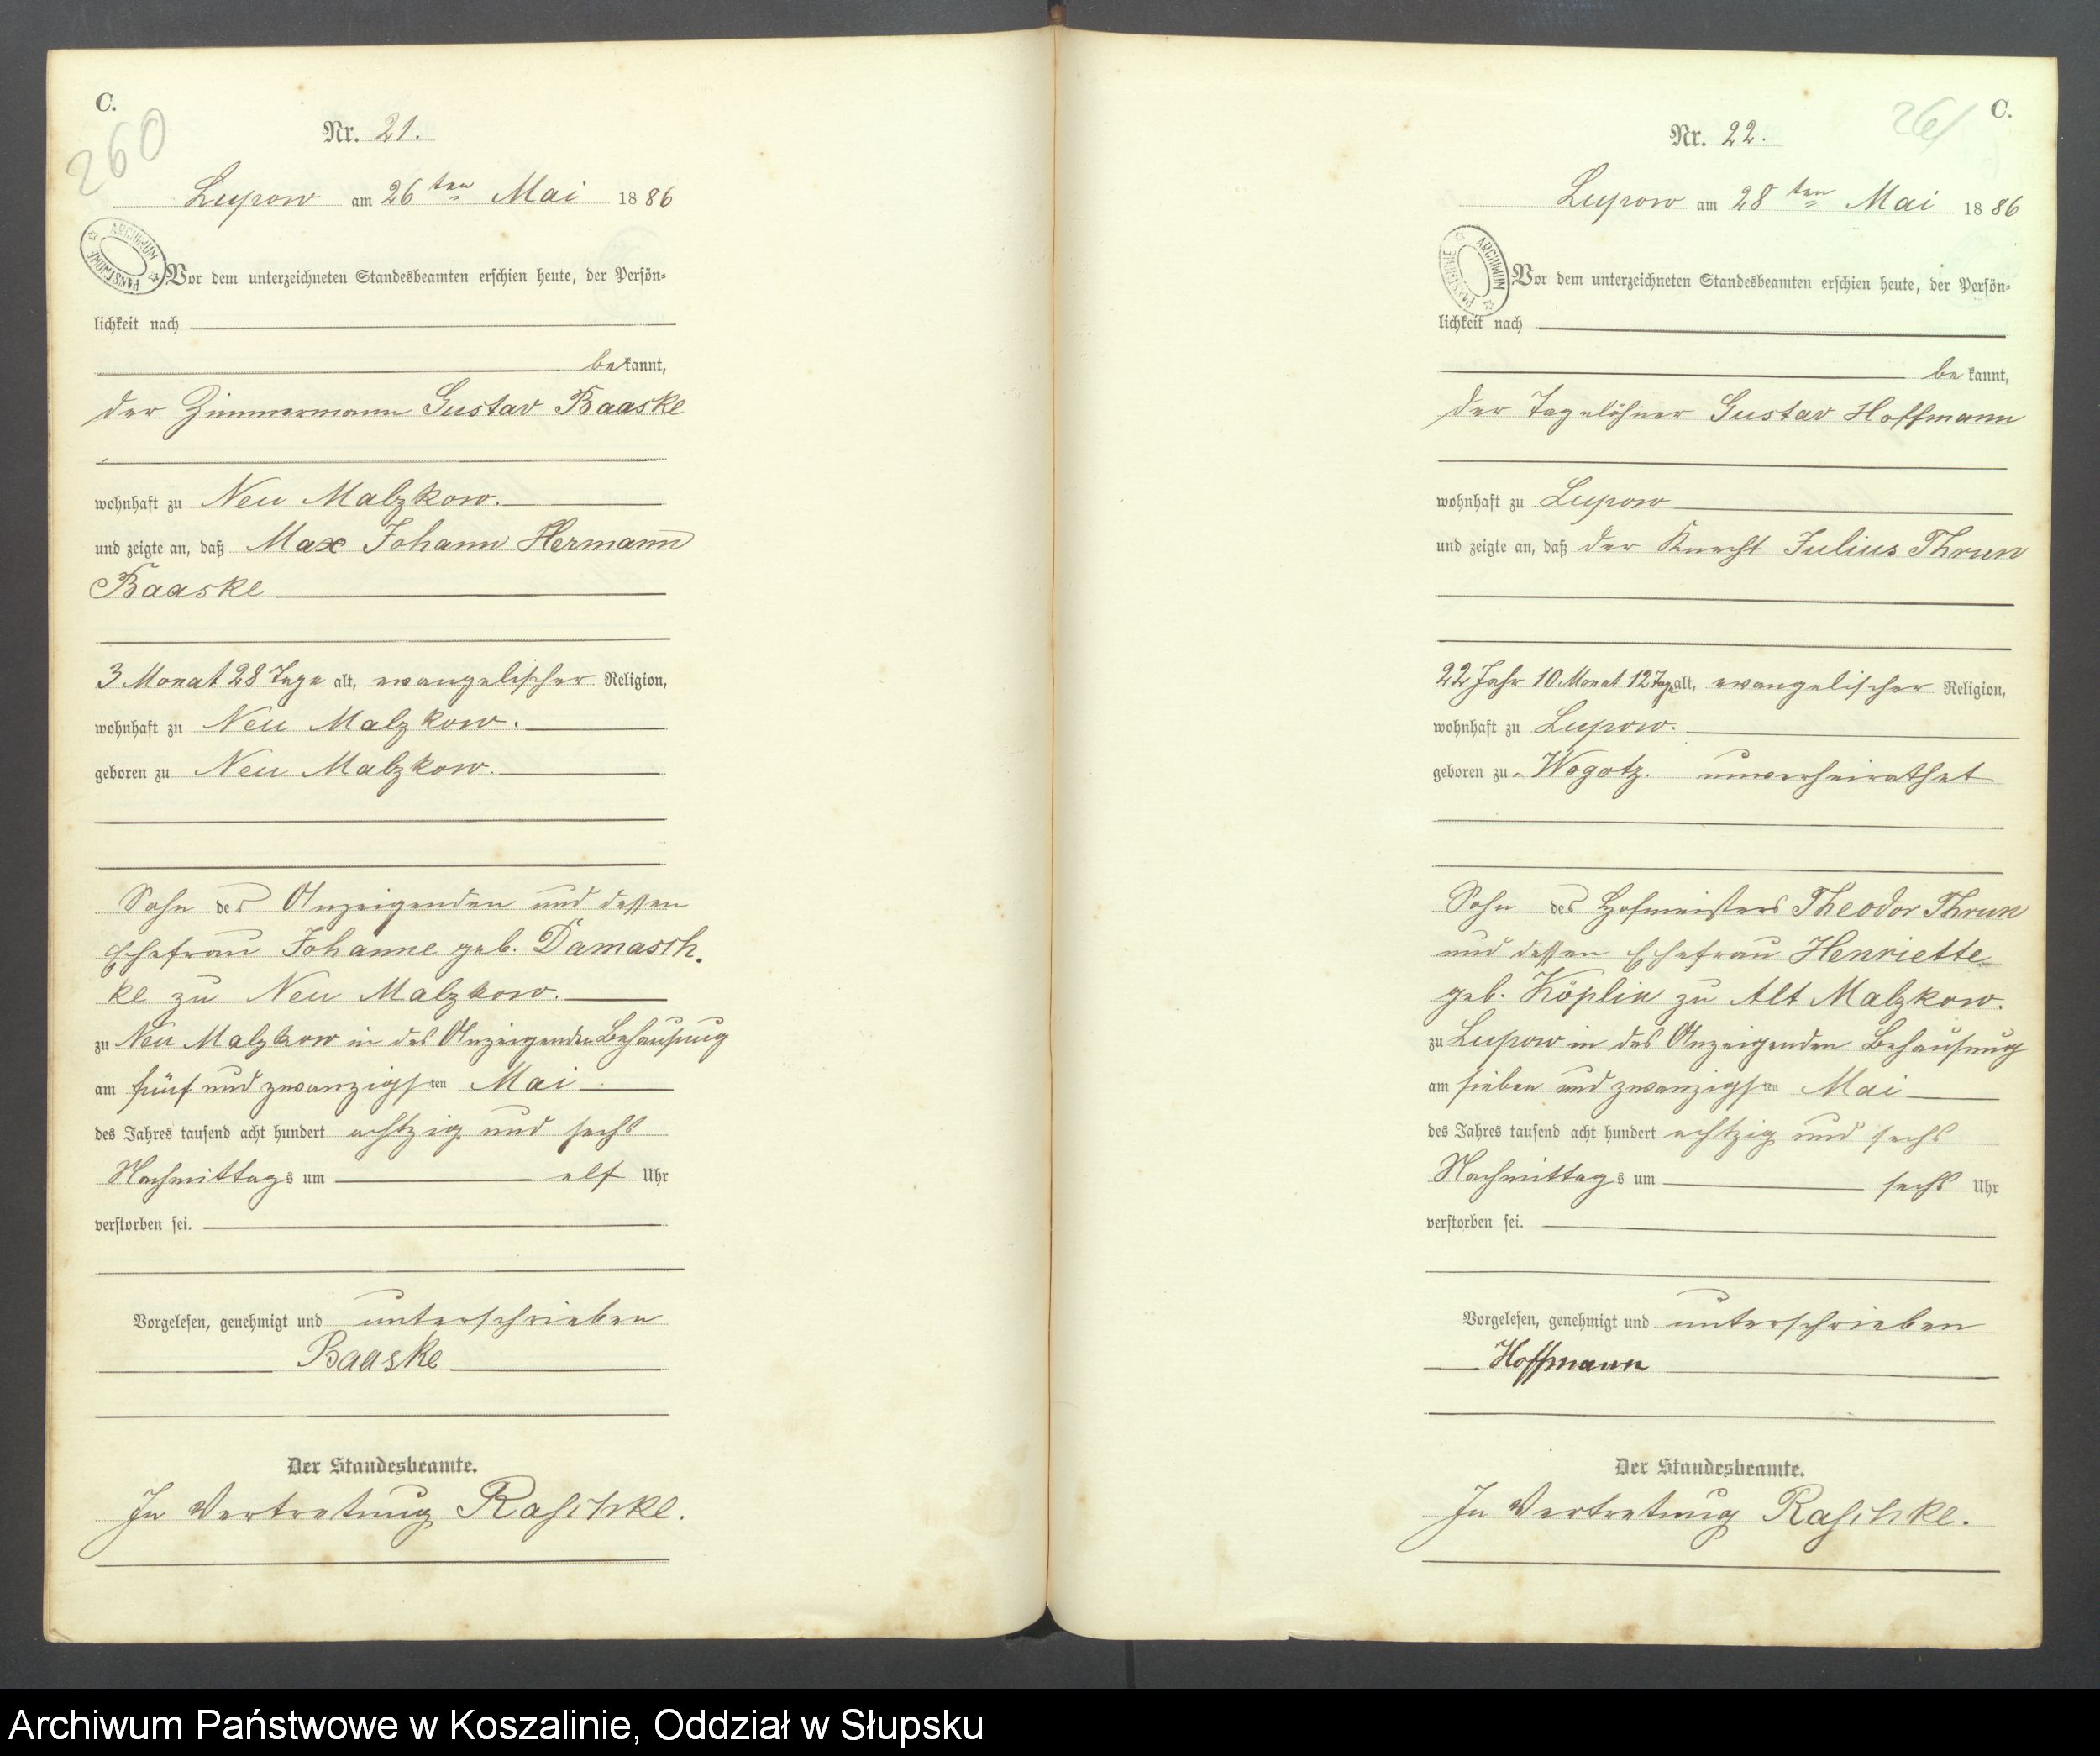 C.
260
Nr. 21.
Lupow am 26ten Mai 1886
ARCHIWUM PAŃSTWOWE
Vor dem unterzeichneten Standesbeamten erschien heute, der Persön-
lichkeit nach
bekannt,
der Zimmermann Gustav Baaske
wohnhaft zu Neu Malzkow.
und zeigte an, daß Max Johann Hermann
Baaske
3 Monat 28 Tage alt, evangelischer Religion,
wohnhaft zu Neu Malzkow.
geboren zu Neu Malzkow.
Sohn des Anzeigenden und dessen
Ehefrau Johanne geb. Damasch-
ke zu Neu Malzkow.
zu Neu Malzkow in des Anzeigenden Behausung
am fünf und zwanzigsten Mai
des Jahres tausend acht hundert achtzig und sechs
Nachmittags um elf Uhr
verstorben sei.
Vorgelesen, genehmigt und unterschrieben
Baaske
Der Standesbeamte.
In Vertretung Raschke.
C.
261
Nr. 22.
Lupow am 28ten Mai 1886
ARCHIWUM PAŃSTWOWE
Vor dem unterzeichneten Standesbeamten erschien heute, der Persön-
lichkeit nach
bekannt,
der Tagelöhner Gustav Hoffmann
wohnhaft zu Lupow
und zeigte an, daß der Knecht Julius Thrun
22 Jahr 10 Monat 12 Tage alt, evangelischer Religion,
wohnhaft zu Lupow.
geboren zu Wogotz. unverheirathet
Sohn des Hofmeisters Theodor Thrun
und dessen Ehefrau Henriette
geb. Köplin zu Alt Malzkow.
zu Lupow in des Anzeigenden Behausung
am sieben und zwanzigsten Mai
des Jahres tausend acht hundert achtzig und sechs
Nachmittags um sechs Uhr
verstorben sei.
Vorgelesen, genehmigt und unterschrieben
Hoffmann
Der Standesbeamte.
In Vertretung Raschke.
Archiwum Państwowe w Koszalinie, Oddział w Słupsku